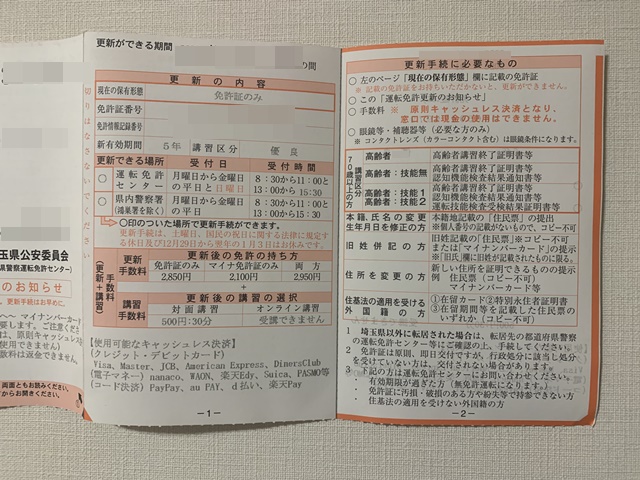 玉県公安委員会
県警察運転免許センター）
のお知らせ
、更新手続はお早めに。
～ マイナンバーカード
要します。ご注意くださ
は、原則キャッシュレス
使用できません）
数料は返金できません。
両面ともお読みください。
からお開きください。
切りはなさないでください
更新ができる期間
の間
更新の内容
現在の保有形態 免許証のみ
免許証番号
免許情報記録番号
新有効期間 5年 講習区分 優良
更新できる場所 受付日 受付時間
○ 運転免許センター 月曜日から金曜日の平日と日曜日 8：30から11：00と13：00から15：30
○ 県内警察署（鴻巣署を除く） 月曜日から金曜日の平日 8：30から11：00と13：00から15：30
○印のついた場所で更新手続きができます。
更新手続は、土曜日、国民の祝日に関する法律に規定する休日及び12月29日から翌年の1月3日はお休みです。
手数料（更新＋講習）
更新手数料 更新後の免許の持ち方
免許証のみ マイナ免許証のみ 両方
2,850円 2,100円 2,950円
＋
講習手数料 更新後の講習の選択
対面講習 オンライン講習
500円：30分 受講できません
【使用可能なキャッシュレス決済】
（クレジット・デビットカード）
Visa, Master, JCB, American Express, DinersClub
（電子マネー）nanaco, WAON, 楽天Edy, Suica, PASMO等
（コード決済）PayPay, au PAY, d払い, 楽天Pay
－1－
更新手続に必要なもの
○ 左のページ「現在の保有形態」欄に記載の免許証
※ 記載の免許証をお持ちいただかないと、更新ができません。
○ この「運転免許更新のお知らせ」
○ 手数料 ※ 原則キャッシュレス決済となり、
窓口では現金の使用はできません。
○ 眼鏡等・補聴器等（必要な方のみ）
※ コンタクトレンズ（カラーコンタクト含む）は眼鏡条件になります。
70歳以上の方
高齢者 高齢者講習終了証明書等
高齢者：技能無 高齢者講習終了証明書等
認知機能検査結果通知書等
高齢者：技能1 高齢者講習終了証明書等
高齢者：技能2 認知機能検査結果通知書等
運転技能検査受検結果証明書等
本籍、氏名の変更 本籍地記載の「住民票」の提出
生年月日を修正の方 ※個人番号の記載がないもので、コピー不可
旧姓併記の方 旧姓記載の「住民票」※コピー不可
または「マイナンバーカード」の提示
※「旧氏」欄に旧姓が記載されたものに限る。
住所を変更の方 新しい住所を証明できるものの提示
例 住民票（コピー不可）
マイナンバーカード等
住基法の適用を受ける外国籍の方 ①在留カード②特別永住者証明書
③在留期間等を記載した住民票の
いずれか（コピー不可）
1 埼玉県以外に転居された場合は、転居先の都道府県警察
の運転免許センター等にご確認の上、手続してください。
2 免許証は原則、即日交付ですが、行政処分に該当し処分
を受けていない方は、交付されない場合があります。
3 下記の方は運転免許センターにお問い合わせください。
・有効期限が過ぎた方（無免許運転になります。）
・免許証に汚損・破損のある方や紛失等で持参できない方
・住基法の適用を受けない外国籍の方
－2－